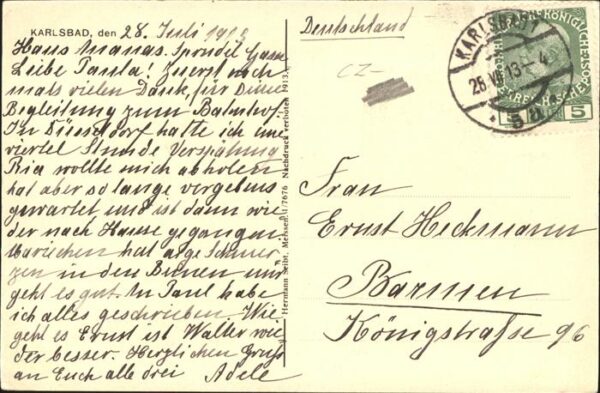 KARLSBAD, den 28. Juli 1913
Haus Ananas. Sprudel Gasse
Liebe Paula! Zuerst noch
mals vielen Dank, für Deine
Begleitung zum Bahnhof.
In Düsseldorf hatte ich eine
viertel Stunde Verspätung
Ria wollte mich abholen
hat aber so lange vergebens
gewartet und ist dann wie
der nach Hause gegangen.
Mariechen hat arge Schmer
zen in den Beinen mir
geht es gut. An Paul habe
ich alles geschrieben. Wie
geht es Ernst ist Walter wie
der besser. Herzlichen Gruß
an Euch alle drei Adele
Hermann Seibt, Meissen, 1/7676 Nachdruck verboten 1913.
Deutschland
CZ-
KARLSBAD 1
28 VII 13 - 4
5
5
Frau
Ernst Heckmann
Barmen
Königstraße 96